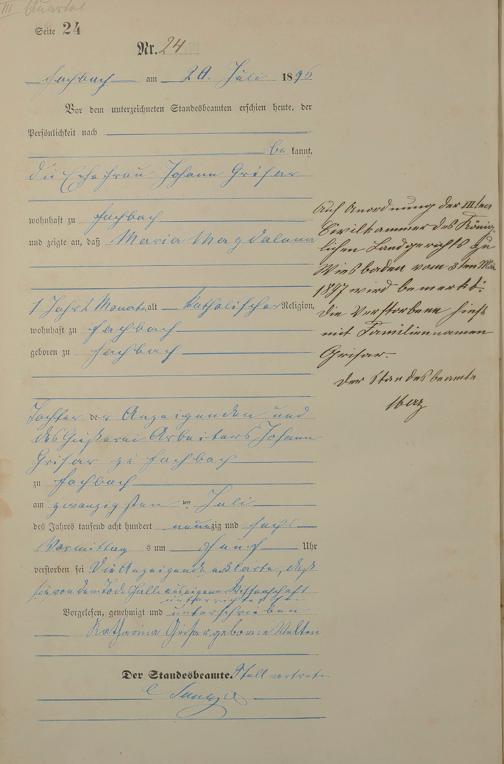 III Quartal
Seite 24
Nr. 24
Fachbach am 20. Juli 1896
Vor dem unterzeichneten Standesbeamten erschien heute, der
Persönlichkeit nach
be kannt,
die Ehefrau Johann Grisar
wohnhaft zu Fachbach
und zeigte an, daß Maria Magdalena
1 Jahr 2 Monate, alt katholischer Religion,
wohnhaft zu Fachbach
geboren zu Fachbach
Tochter der Anzeigenden und
des Gießerei Arbeiters Johann
Grisar zu Fachbach
zu Fachbach
am zwanzigsten Juli
des Jahres tausend acht hundert neunzig und sechs
Vormittags um fünf Uhr
verstorben sei Die Anzeigende erklärte, daß
sie von dem Todesfalle aus eigener Wissenschaft
unterrichtet sei
Vorgelesen, genehmigt und unterschrieben
Katharina Grisar geborne
Der Standesbeamte.
Auf Anordnung der III ten
Civilkammer des König-
lichen Landgerichts zu
Wiesbaden vom 3ten Mai
1897 wird bemerkt:
die Verstorbene hieß
mit Familiennamen
Grisar.—
Der Standesbeamte